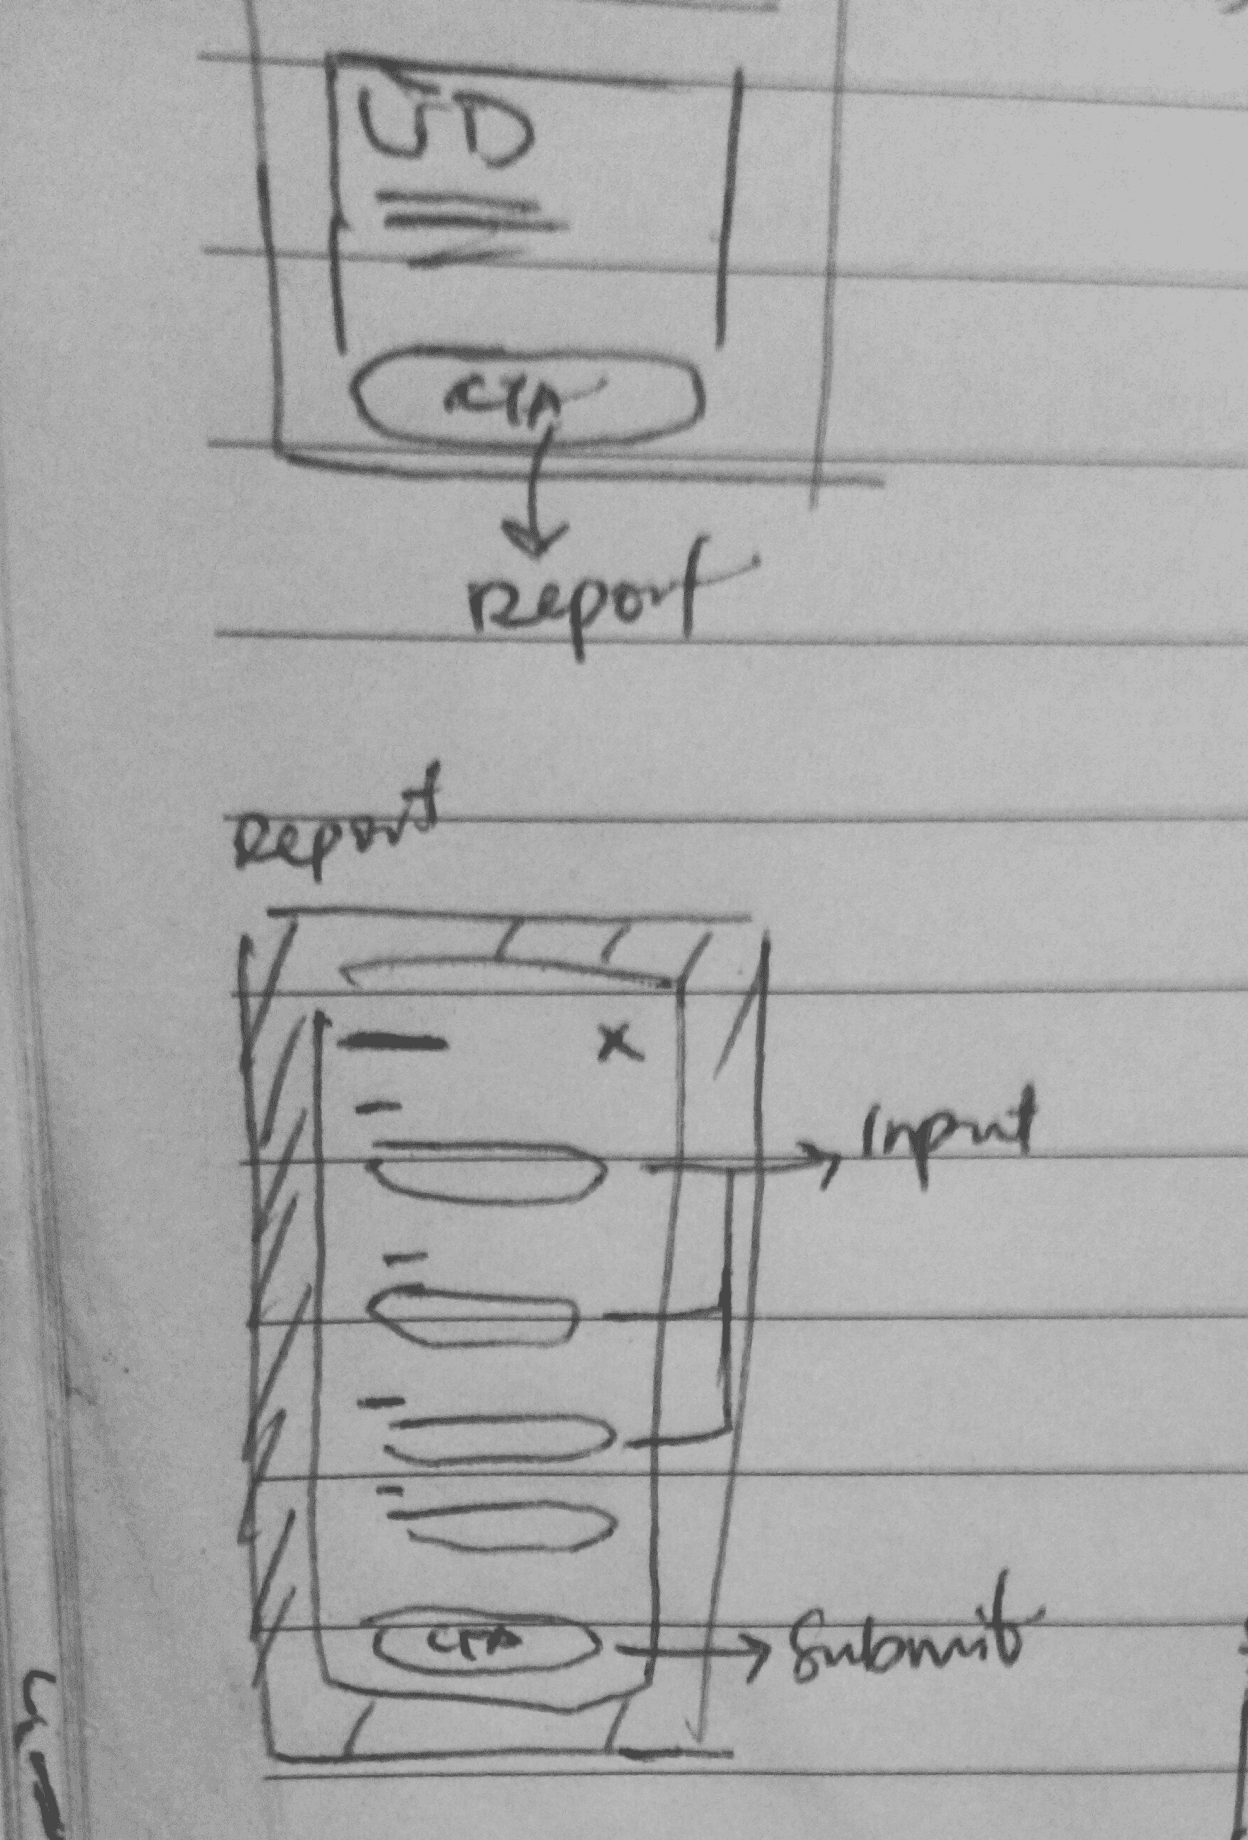 UD
CTA
Report
Report
X
Input
CTA
Submit